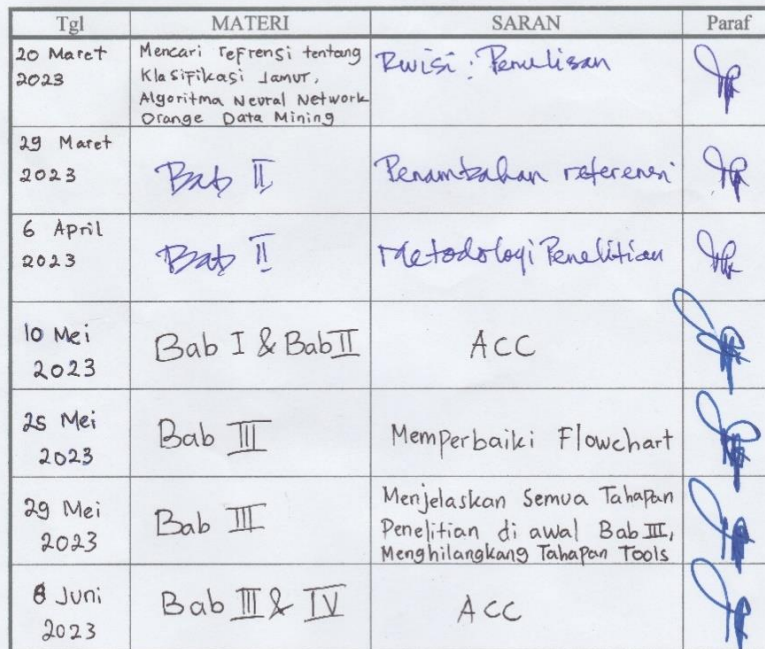 Tgl MATERI SARAN Paraf
20 Maret
2023
Mencari refrensi tentang
Klasifikasi Jamur,
Algoritma Neural Network
Orange Data Mining
Revisi : Penulisan
29 Maret
2023
Bab II
Penambahan referensi
6 April
2023
Bab II
Metodologi Penelitian
10 Mei
2023
Bab I & Bab II
ACC
25 Mei
2023
Bab III
Memperbaiki Flowchart
29 Mei
2023
Bab III
Menjelaskan Semua Tahapan
Penelitian di awal Bab III,
Menghilangkang Tahapan Tools
8 Juni
2023
Bab III & IV
ACC